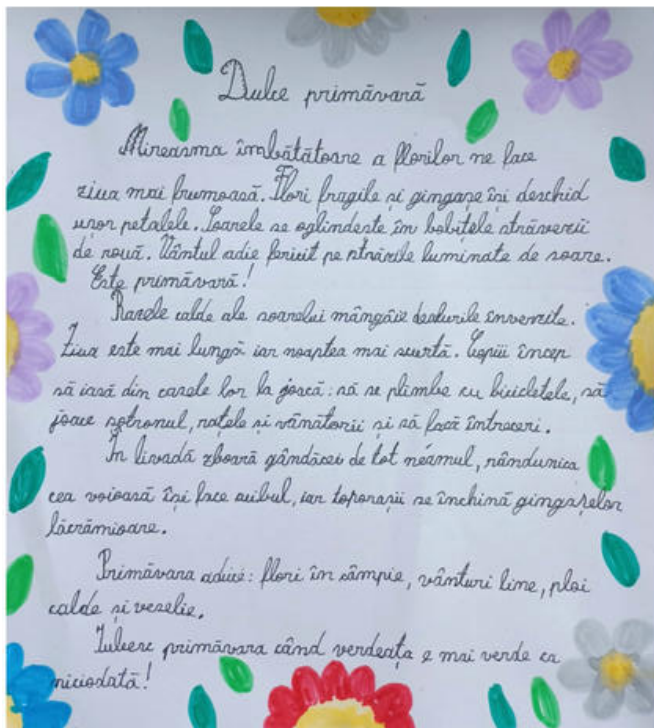 Dulce primăvară
Mireasma îmbătătoare a florilor ne face
ziua mai frumoasă. Flori fragile și gingașe își deschid
ușor petalele. Soarele se oglindește în bobițele străvezii
de rouă. Vântul adie fericit pe străzile luminate de soare.
Este primăvară!
Razele calde ale soarelui mângâie dealurile înverzite.
Ziua este mai lungă iar noaptea mai scurtă. Copiii încep
să iasă din casele lor la joacă: să se plimbe cu bicicletele, să
joace șotronul, rațele și vânătorii și să facă întreceri.
În livadă zboară gândăcei de tot neamul, rândunica
cea voioasă își face cuibul, iar toporașii se închină gingașelor
lăcrămioare.
Primăvara aduce: flori în câmpie, vânturi line, ploi
calde și veselie.
Iubesc primăvara când verdeața e mai verde ca
niciodată!